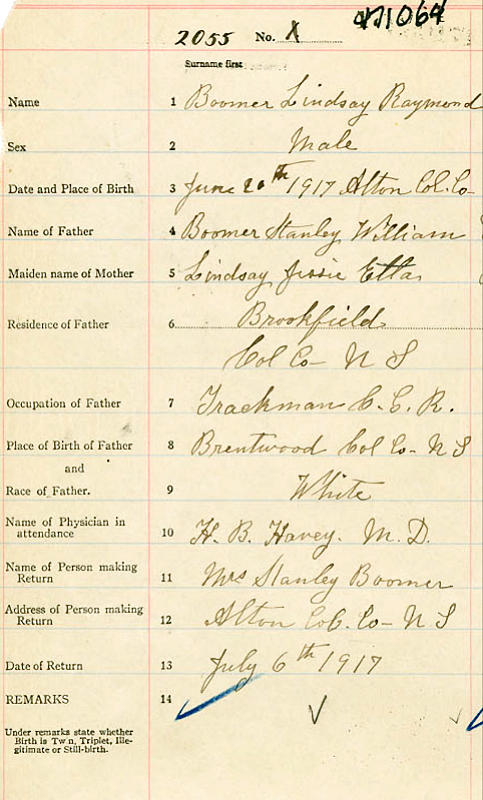 471064
2055 No. X
Surname first
Name 1 Boomer Lindsay Raymond
Sex 2 Male
Date and Place of Birth 3 June 20th 1917 Alton Col. Co
Name of Father 4 Boomer Stanley William
Maiden name of Mother 5 Lindsay Jessie Etta
Residence of Father 6 Brookfield
Col Co- N S
Occupation of Father 7 Trackman C. G. R.
Place of Birth of Father 8 Brentwood Col Co- N S
and
Race of Father. 9 White
Name of Physician in
attendance 10 H. B. Havey. M. D.
Name of Person making
Return 11 Mrs Stanley Boomer
Address of Person making
Return 12 Alton Col. Co- N S
Date of Return 13 July 6th 1917
REMARKS 14
Under remarks state whether
Birth is Twin, Triplet, Ille-
gitimate or Still-birth.